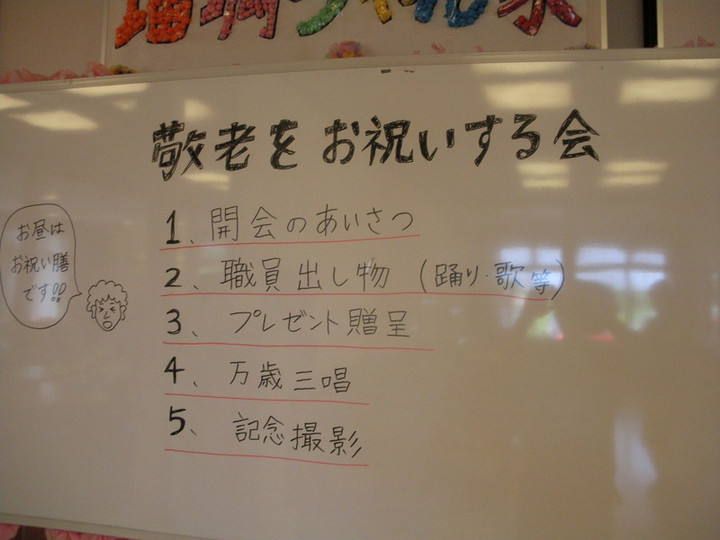 敬老をお祝いする会
1、開会のあいさつ
2、職員出し物（踊り・歌等）
3、プレゼント贈呈
4、万歳三唱
5、記念撮影
お昼は
お祝い膳
です!!